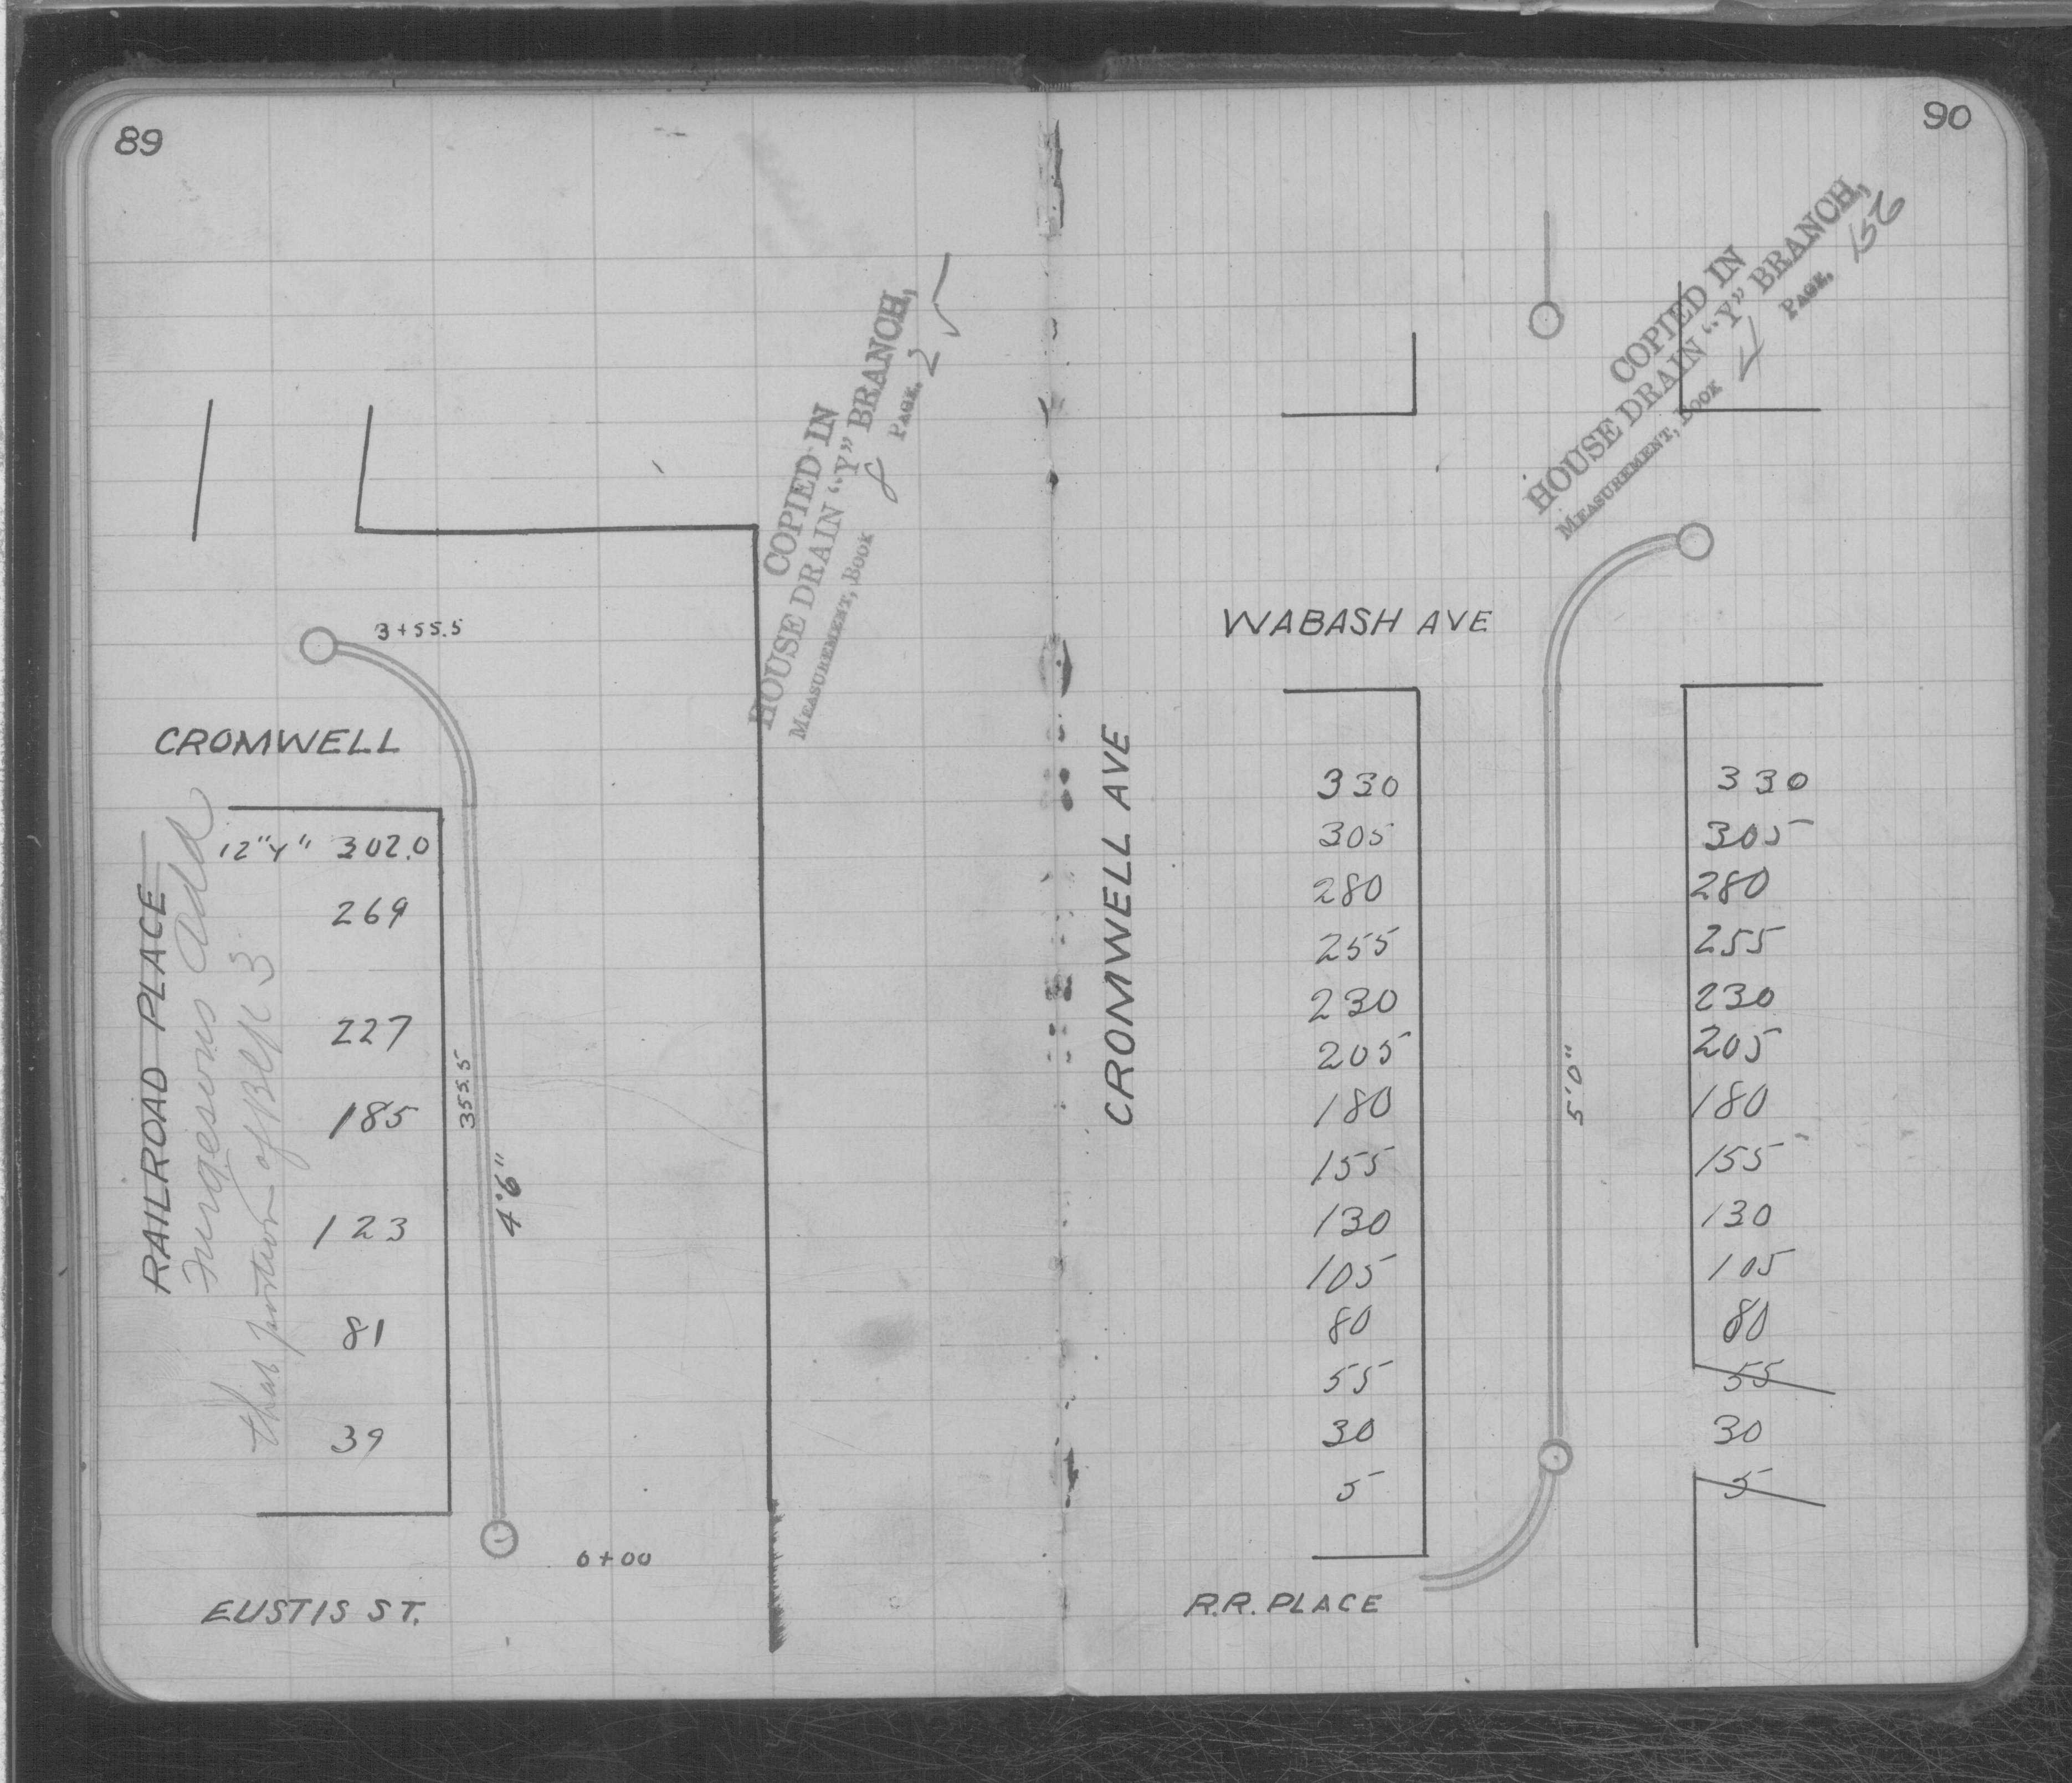 89
COPIED IN
HOUSE DRAIN "Y" BRANCH,
MEASUREMENT, BOOK 8 PAGE. 2
3+55.5
CROMWELL
RAILROAD PLACE
Add
that portion of Blk 3
12"Y" 302.0
269
227
185
123
81
39
355.5
4'6"
0+00
EUSTIS ST.
90
COPIED IN
HOUSE DRAIN "Y" BRANCH,
MEASUREMENT, BOOK PAGE, 156
WABASH AVE
CROMWELL AVE
330 330
305 305
280 280
255 255
230 230
205 205
180 180
155 155
130 130
105 105
80 80
55 55
30 30
5 5
5'0"
R.R. PLACE